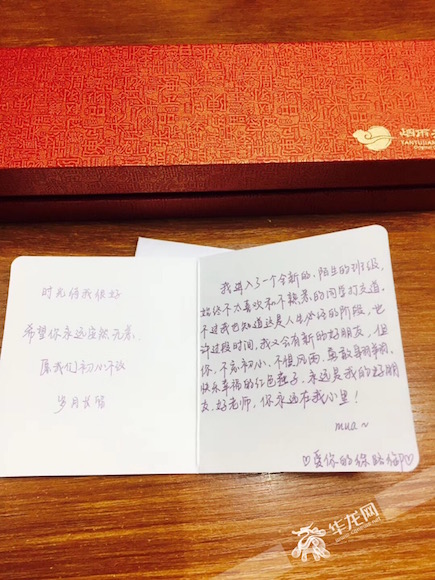 时光待我很好
希望你永远安然无恙.
愿我们初心不改
岁月长留
我进入了一个全新的、陌生的班级,
始终不太喜欢和不熟悉的同学打交道.
不过我也知道这是人生必须的阶段,也
许过段时间,我又会有新的好朋友,但
你,不忘初心,不惧风雨,勇敢
快乐幸福的红色鞋子,永远是我的好朋
友、好老师,你永远在我心里!
mua~
♡爱你的徐♡
华龙网